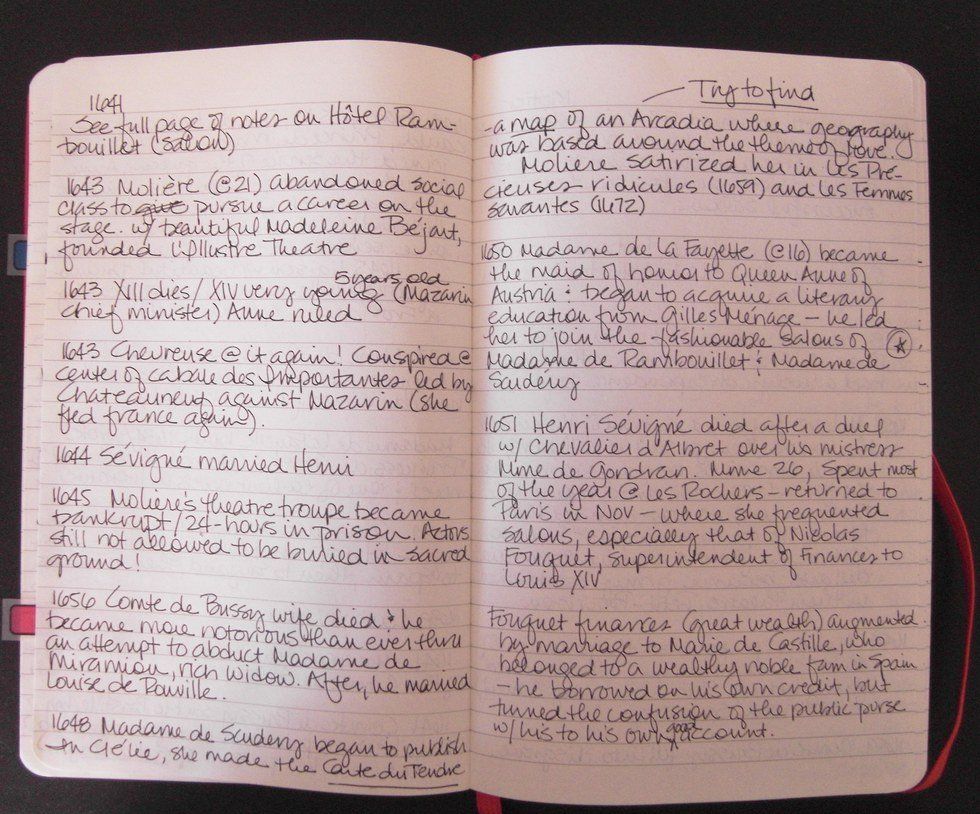 1641
See full page of notes on Hôtel Ram-
bouillet (salon)
1643 Molière (@21) abandoned social
class to give pursue a career on the
stage. w/ beautiful Madeleine Béjart,
founded L'Illustre Theatre
5 years old
1643 XIII dies / XIV very young (Mazarin
chief minister) Anne ruled
1643 Chevreuse @ it again! Conspired @
center of cabale des Importantes led by
Chateauneuf against Mazarin (she
fled france again).
1644 Sévigné married Henri
1645 Molière's theatre troupe became
bankrupt / 24-hours in prison. Actors
still not allowed to be buried in sacred
ground!
1656 Comte de Bussy wife died & he
became more notorious than ever thru
an attempt to abduct Madame de
Miramion, rich widow. After, he married
Louise de Rouville.
1648 Madame de Scudery began to publish
In Clélie, she made the Carte du Tendre
Try to find
-a map of an Arcadia where geography
was based around the theme of love.
Moliere satirized her in Les Pré-
cieuses ridicules (1659) and Les Femmes
savantes (1672)
1650 Madame de La Fayette (@16) became
the maid of honor to Queen Anne of
Austria & began to acquire a literary
education from Gilles Menace - he led
her to join the fashionable salons of
Madame de Rambouillet & Madame de
Scudéry
1651 Henri Sévigné died after a duel
w/ Chevalier d'Albret over his mistress
Mme de Gondran. Mme 26, spent most
of the year @ Les Rochers - returned to
Paris in Nov - where she frequented
salons, especially that of Nicolas
Fouquet, superintendent of Finances to
Louis XIV
Fouquet finances (great wealth) augmented
by marriage to Marie de Castille, who
belonged to a wealthy noble fam in Spain
- he borrowed on his own credit, but
turned the confusion of the public purse
w/ his to his own good account.